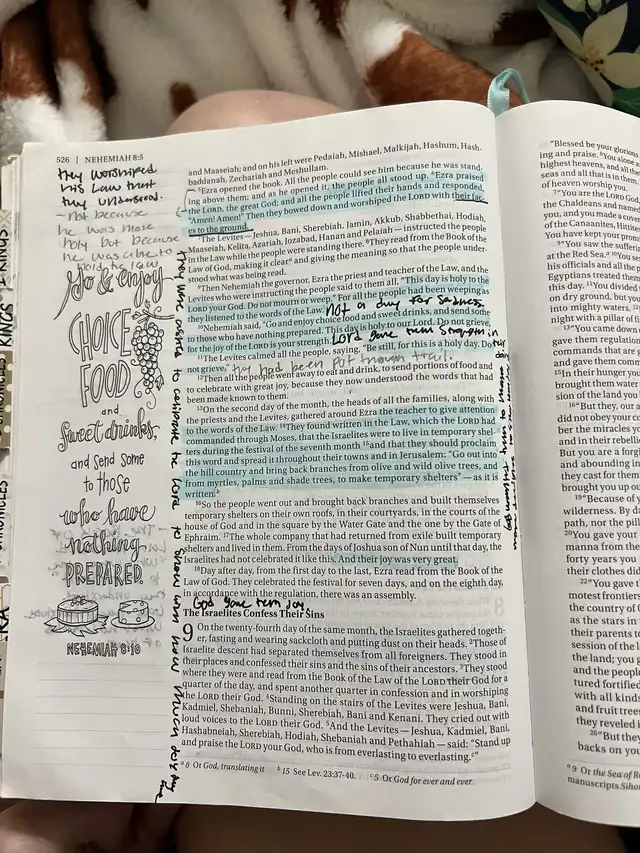 526 | NEHEMIAH 8:5
they worshiped
his Law that
they understood.
- not because
he was more
holy but because
he was able to
hold the law
Go & enjoy
CHOICE
FOOD
and
Sweet drinks,
and send some
to those
who have
nothing
PREPARED.
NEHEMIAH 8:10
and Maaseiah; and on his left were Pedaiah, Mishael, Malkijah, Hashum, Hash-
baddanah, Zechariah and Meshullam.
5Ezra opened the book. All the people could see him because he was stand-
ing above them; and as he opened it, the people all stood up. 6Ezra praised
the LORD, the great God; and all the people lifted their hands and responded,
"Amen! Amen!" Then they bowed down and worshiped the LORD with their fac-
es to the ground.
7The Levites—Jeshua, Bani, Sherebiah, Jamin, Akkub, Shabbethai, Hodiah,
Maaseiah, Kelita, Azariah, Jozabad, Hanan and Pelaiah—instructed the people
in the Law while the people were standing there. 8They read from the Book of the
Law of God, making it clear a and giving the meaning so that the people under-
stood what was being read.
9Then Nehemiah the governor, Ezra the priest and teacher of the Law, and the
Levites who were instructing the people said to them all, "This day is holy to the
LORD your God. Do not mourn or weep." For all the people had been weeping as
they listened to the words of the Law.
not a day for sadness
10Nehemiah said, "Go and enjoy choice food and sweet drinks, and send some
to those who have nothing prepared. This day is holy to our Lord. Do not grieve,
for the joy of the LORD is your strength."
Lord gave them strength in
11The Levites calmed all the people, saying, "Be still, for this is a holy day. Do
not grieve."
they had been put through trail.
12Then all the people went away to eat and drink, to send portions of food and
to celebrate with great joy, because they now understood the words that had
been made known to them.
13On the second day of the month, the heads of all the families, along with
the priests and the Levites, gathered around Ezra the teacher to give attention
to the words of the Law. 14They found written in the Law, which the LORD had
commanded through Moses, that the Israelites were to live in temporary shel-
ters during the festival of the seventh month 15and that they should proclaim
this word and spread it throughout their towns and in Jerusalem: "Go out into
the hill country and bring back branches from olive and wild olive trees, and
from myrtles, palms and shade trees, to make temporary shelters"—as it is
written. b
16So the people went out and brought back branches and built themselves
temporary shelters on their own roofs, in their courtyards, in the courts of the
house of God and in the square by the Water Gate and the one by the Gate of
Ephraim. 17The whole company that had returned from exile built temporary
shelters and lived in them. From the days of Joshua son of Nun until that day, the
Israelites had not celebrated it like this. And their joy was very great.
18Day after day, from the first day to the last, Ezra read from the Book of the
Law of God. They celebrated the festival for seven days, and on the eighth day,
in accordance with the regulation, there was an assembly.
God gave them joy
The Israelites Confess Their Sins
9 On the twenty-fourth day of the same month, the Israelites gathered togeth-
er, fasting and wearing sackcloth and putting dust on their heads. 2Those of
Israelite descent had separated themselves from all foreigners. They stood in
their places and confessed their sins and the sins of their ancestors. 3They stood
where they were and read from the Book of the Law of the LORD their God for a
quarter of the day, and spent another quarter in confession and in worshiping
the LORD their God. 4Standing on the stairs of the Levites were Jeshua, Bani,
Kadmiel, Shebaniah, Bunni, Sherebiah, Bani and Kenani. They cried out with
loud voices to the LORD their God. 5And the Levites—Jeshua, Kadmiel, Bani,
Hashabneiah, Sherebiah, Hodiah, Shebaniah and Pethahiah—said: "Stand up
and praise the LORD your God, who is from everlasting to everlasting. c"
a 8 Or God, translating it b 15 See Lev. 23:37-40. c 5 Or God for ever and ever
"Blessed be your glorious
ing and praise. 6You alone
highest heavens, and all
seas and all that is in them.
of heaven worship you.
7"You are the LORD God,
the Chaldeans and named
you, and you made a cove
of the Canaanites, Hittites
You have kept your prom
9"You saw the suffering
at the Red Sea. 10You sen
his officials and all the p
Egyptians treated them
this day. 11You divided
on dry ground, but you
into mighty waters. 12
night with a pillar of fi
13"You came down
gave them regulation
commands that are
and gave them comm
15In their hunger you
brought them water
sion of the land you
16"But they, our
did not obey your co
ber the miracles you
and in their rebelli
But you are a forgi
and abounding in
they cast for them
brought you up ou
19"Because of y
wilderness. By da
path, nor the pill
20You gave your
manna from the
forty years you
their clothes di
22"You gave t
motest frontiers
the country of
as the stars in
that you told
their parents t
session of the l
the land; you
and the people
tured fortified
with all kinds
and fruit trees
they reveled i
26"But they
backs on you
a 9 Or the Sea of Re
manuscripts Sihon